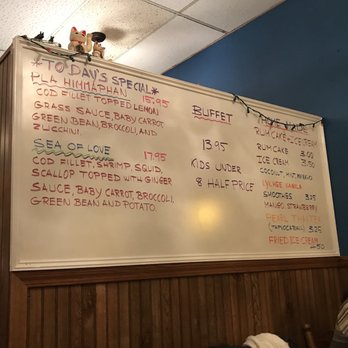 *TO DAY'S SPECIAL*
PLA HIMMAPHAN 15.95
COD FILLET TOPPED LEMON
GRASS SAUCE, BABY CARROT
GREEN BEAN, BROCCOLI, AND
ZUCCHINI.
SEA OF LOVE 17.95
COD FILLET, SHRIMP, SQUID,
SCALLOP TOPPED WITH GINGER
SAUCE, BABY CARROT, BROCCOLI,
GREEN BEAN AND POTATO.
BUFFET
13.95
KIDS UNDER
8 HALF PRICE
HOME MADE
RUM CAKE + ICE CREAM
RUM CAKE 3.00
ICE CREAM 3.50
COCONUT, MINT,
LYCHEE VANILA
SMOOTHIES 3.25
MANGO STRAWBERRY
PEARL THAI TEA
(TAPIOCA BALL) 3.25
FRIED ICE CREAM